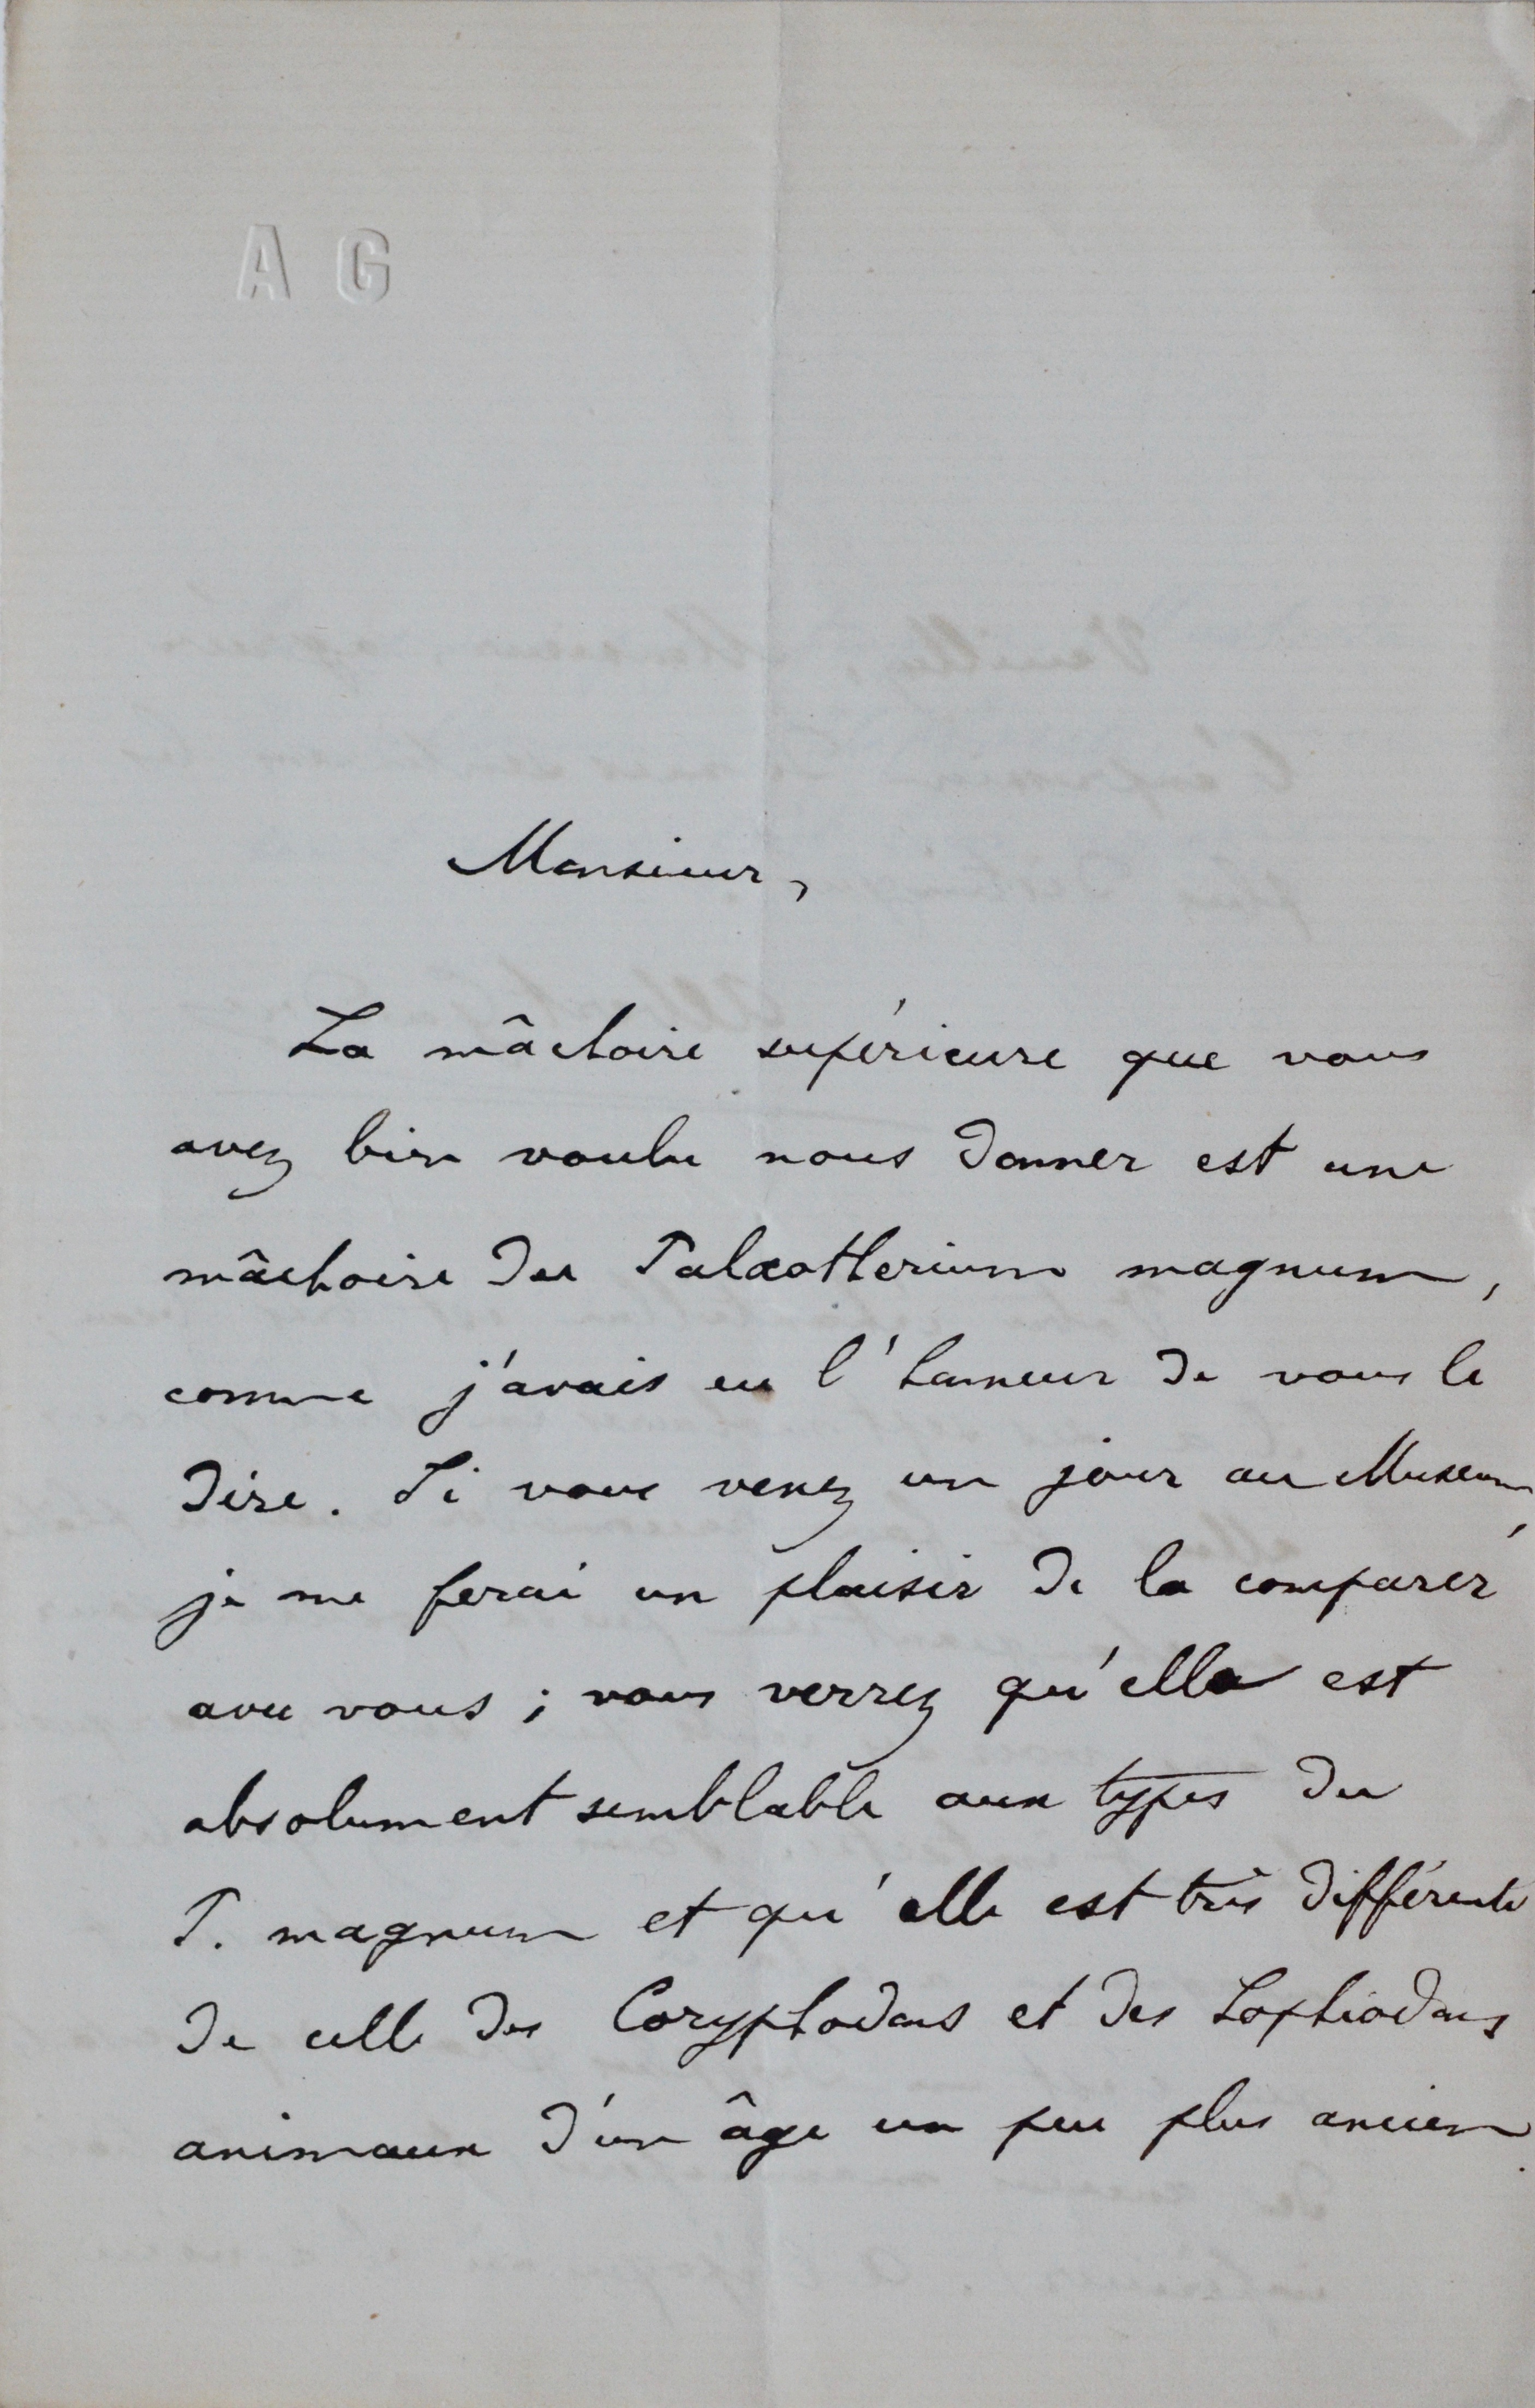 A G
Monsieur,
La mâchoire supérieure que vous
avez bien voulu nous donner est une
mâchoire du Palæotherium magnum,
comme j'avais eu l'honneur de vous le
dire. Si vous venez un jour au Museum,
je me ferai un plaisir de la comparer
avec vous ; vous verrez qu'elle est
absolument semblable aux types du
P. magnum et qu'elle est très différente
de celle des Coryphodons et des Lophiodons
animaux d'un âge un peu plus ancien.